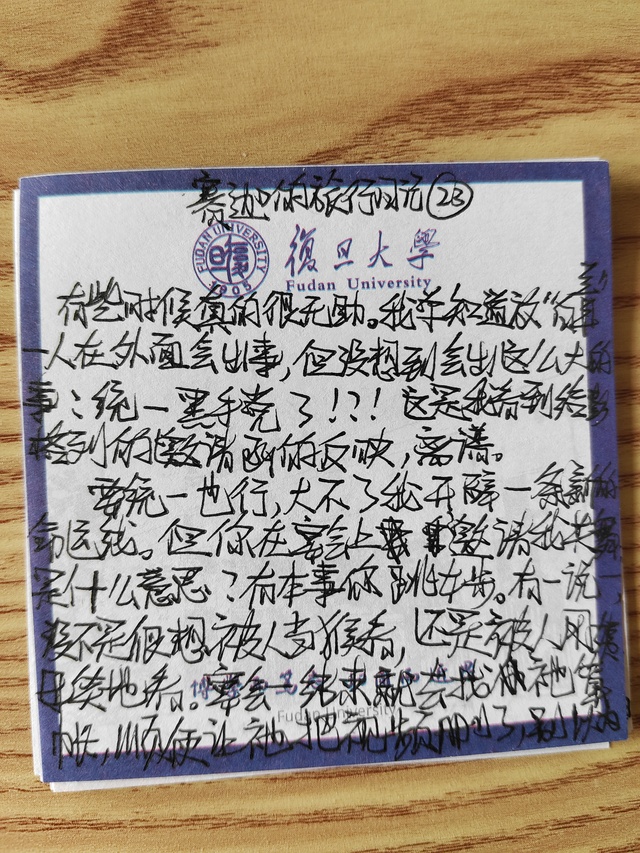 寒池的旅行日记㉓
FUDAN UNIVERSITY
1905
復旦大學
Fudan University
有些时候真的很无助。我早知道放“自
一人在外面会出事，但没想到会出这么大的
事：统一黑手党了！？！这是我看到给彭
格列的邀请函的反映，离谱。
要统一也行，大不了我开辟一条新的
命运线。但你在宴会上邀请我共舞
是什么意思？有本事你跳女步。有一说一，
我不是很想被人当猴看，还是被人
地看。宴会一结束就会找他祂算
帐，顺便让祂把视频删了，别以为
Fudan University